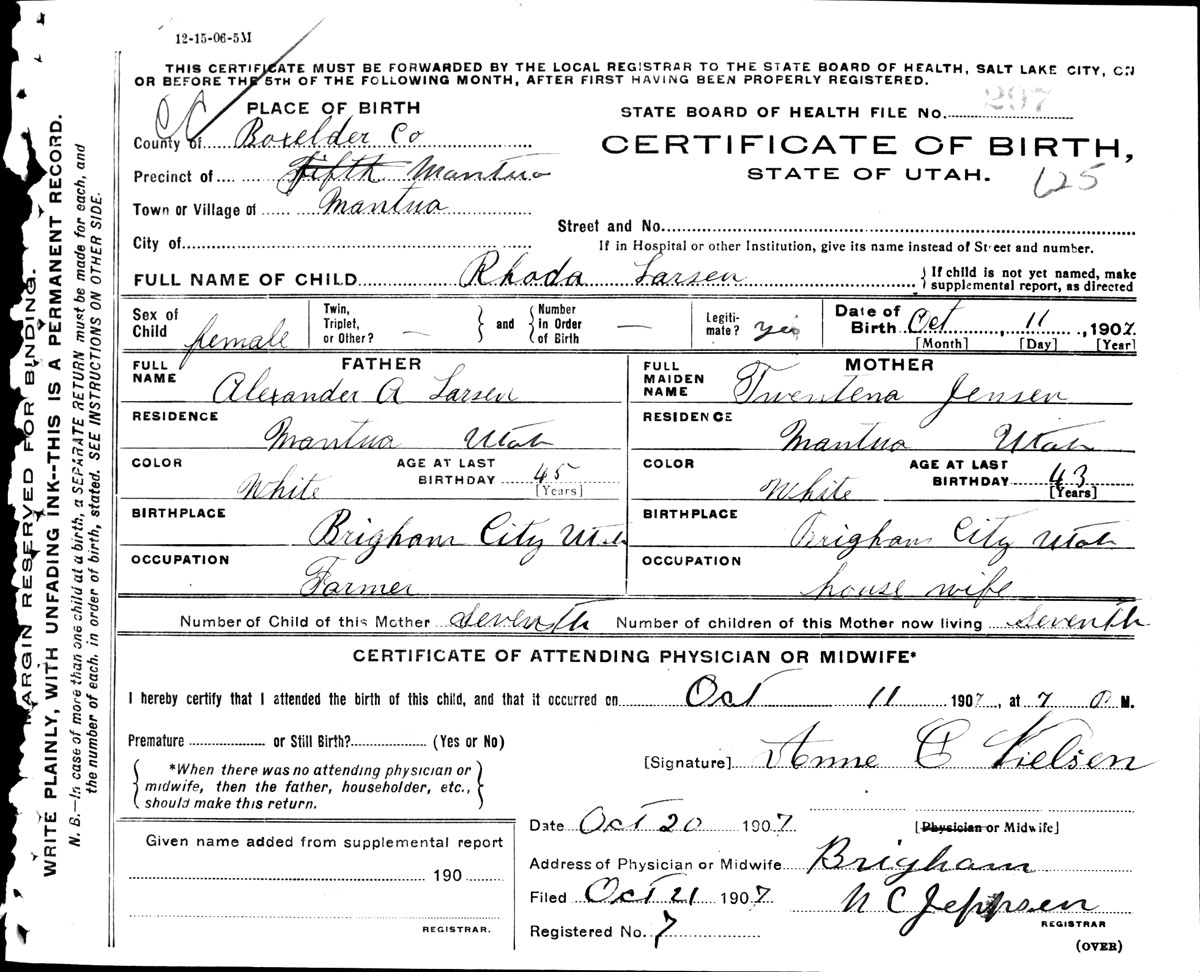 12-15-06-5M
THIS CERTIFICATE MUST BE FORWARDED BY THE LOCAL REGISTRAR TO THE STATE BOARD OF HEALTH, SALT LAKE CITY, ON
OR BEFORE THE 5TH OF THE FOLLOWING MONTH, AFTER FIRST HAVING BEEN PROPERLY REGISTERED.
PLACE OF BIRTH
STATE BOARD OF HEALTH FILE No. 297
County of Boxelder Co
CERTIFICATE OF BIRTH,
STATE OF UTAH. 625
Precinct of Fifth Mantua
Town or Village of Mantua
Street and No.
City of
If in Hospital or other Institution, give its name instead of Street and number.
FULL NAME OF CHILD Rhoda Larsen
If child is not yet named, make
supplemental report, as directed
Sex of Child female
Twin, Triplet, or Other? —
and
Number in Order of Birth —
Legiti-mate? yes
Date of Birth Oct, 11, 1907
[Month] [Day] [Year]
FATHER
FULL NAME Alexander A Larsen
RESIDENCE
Mantua Utah
COLOR White
AGE AT LAST BIRTHDAY 45
[Years]
BIRTHPLACE
Brigham City Utah
OCCUPATION
Farmer
MOTHER
FULL MAIDEN NAME Twentena Jensen
RESIDENCE
Mantua Utah
COLOR White
AGE AT LAST BIRTHDAY 43
[Years]
BIRTHPLACE
Brigham City Utah
OCCUPATION
house wife
Number of Child of this Mother Seventh Number of children of this Mother now living Seventh
CERTIFICATE OF ATTENDING PHYSICIAN OR MIDWIFE*
I hereby certify that I attended the birth of this child, and that it occurred on Oct 11 1907, at 7 P M.
Premature or Still Birth? (Yes or No)
[Signature] Anne C Nielsen
*When there was no attending physician or
midwife, then the father, householder, etc.,
should make this return.
[Physician or Midwife]
Date Oct 20 1907
Given name added from supplemental report
190
REGISTRAR.
Address of Physician or Midwife Brigham
Filed Oct 21 1907
N C Jeppsen
REGISTRAR
Registered No. 7
(OVER)
MARGIN RESERVED FOR BINDING.
WRITE PLAINLY, WITH UNFADING INK--THIS IS A PERMANENT RECORD.
N. B.—In case of more than one child at a birth, a SEPARATE RETURN must be made for each, and
the number of each, in order of birth, stated. SEE INSTRUCTIONS ON OTHER SIDE.